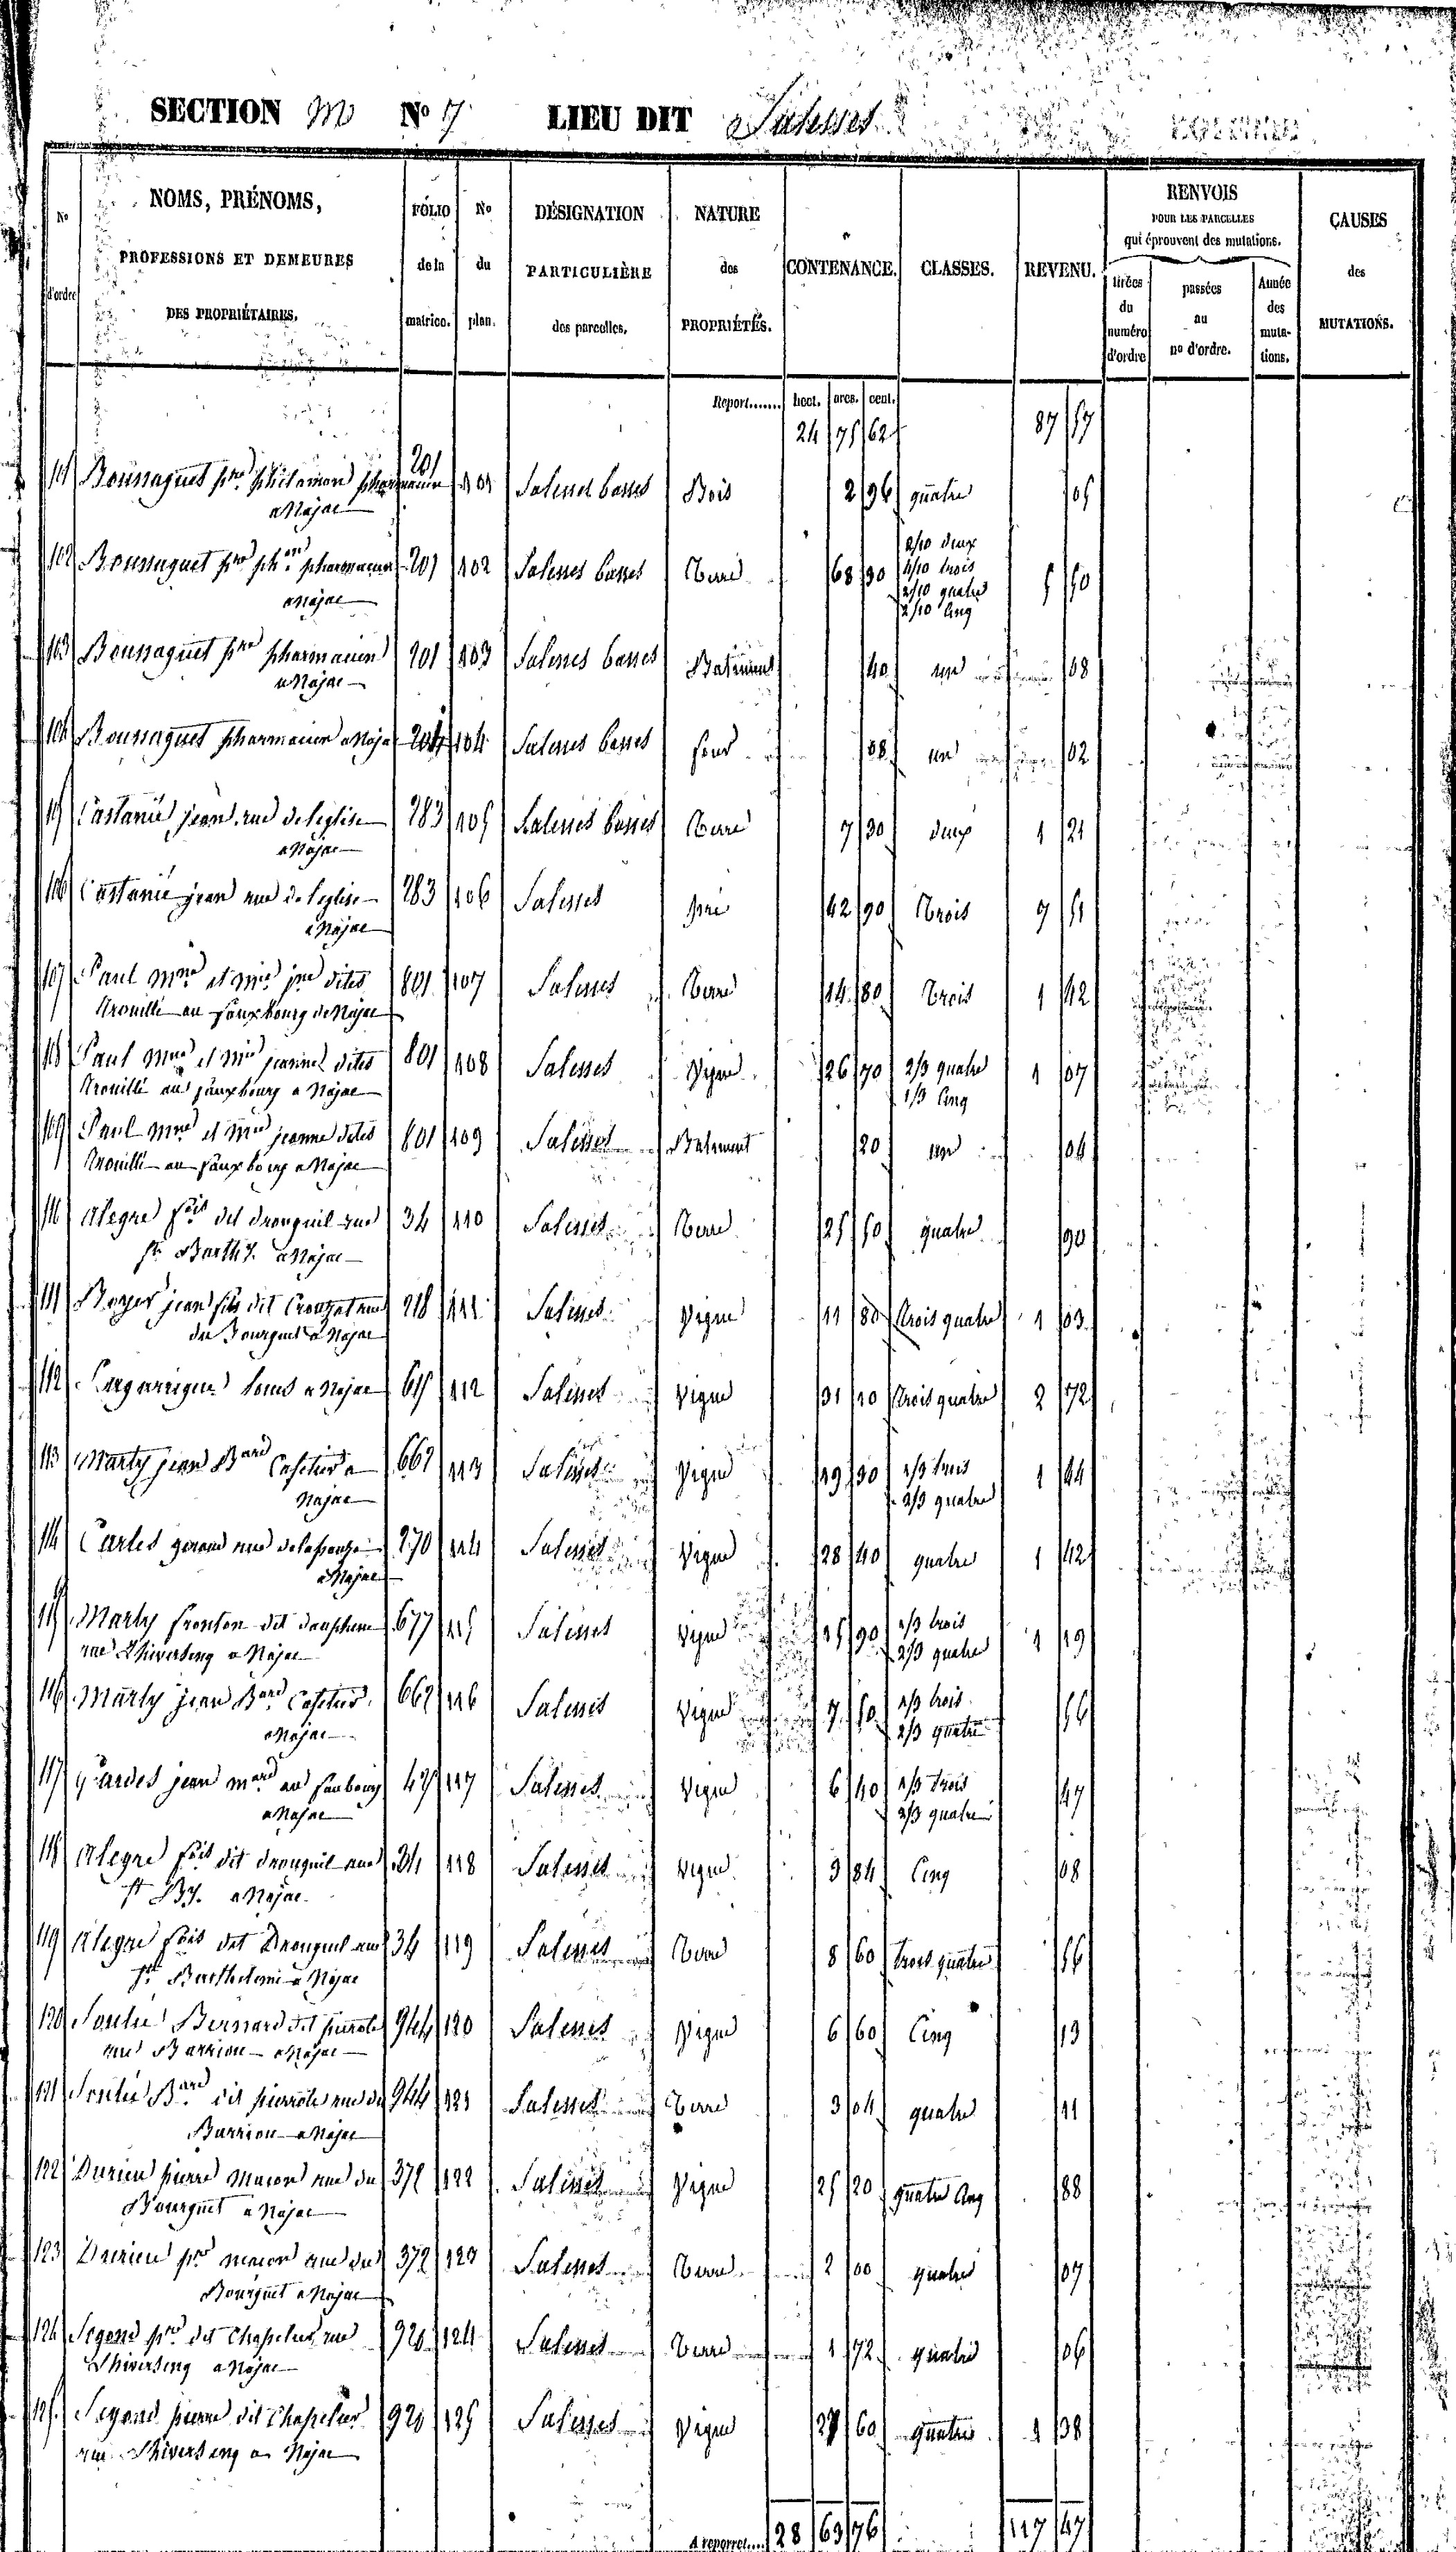 SECTION M No 7 LIEU DIT Salesses
No d'ordre NOMS, PRÉNOMS, PROFESSIONS ET DEMEURES DES PROPRIÉTAIRES. FOLIO de la matrice. No du plan. DÉSIGNATION PARTICULIÈRE des parcelles. NATURE des PROPRIÉTÉS. CONTENANCE. CLASSES. REVENU. RENVOIS POUR LES PARCELLES qui éprouvent des mutations. tirées du numéro d'ordre passées au no d'ordre. Année des mutations. CAUSES des MUTATIONS.
Report....... hect. ares. cent.
24 75 62 87 57
101 Boussaguet pre philemon pharmacien 201 101 Salesses basses Bois 2 96 quatre 05
a Najac
102 Boussaguet pre phon pharmacien 201 102 Salesses basses Terre 68 90 2/10 deux 4/10 trois 2/10 quatre 2/10 cinq 5 50
a Najac
103 Boussaguet pre pharmacien 201 103 Salesses basses Batiment 40 une 08
a Najac
104 Boussaguet pharmacien a Najac 201 104 Salesses basses four 08 une 02
105 Castanié jean rue de l'eglise 283 105 Salesses basses Terre 7 30 deux 1 21
a Najac
106 Castanié jean rue de l'eglise 283 106 Salesses pré 42 90 trois 7 51
a Najac
107 Paul mne et mie jne dites 801 107 Salesses Terre 14 80 trois 1 42
trouillé au fauxbourg de Najac
108 Paul mne et mie jeanne dites 801 108 Salesses Vigne 26 70 2/3 quatre 1/3 cinq 1 07
trouillé au fauxbourg a Najac
109 Paul mne et mie jeanne dites 801 109 Salesses Batiment 20 une 04
trouillé au fauxbourg a Najac
110 Alegre fois dit drouguil rue 34 110 Salesses Terre 25 50 quatre 90
St Barthy a Najac
111 Boyer jean fils dit Crouzet rue 218 111 Salesses Vigne 11 80 trois quatre 1 03
du Bourguet a Najac
112 Lagarrigue louis a Najac 615 112 Salesses Vigne 31 10 trois quatre 2 72
113 Marty jean Bard Cafetier a 662 113 Salesses Vigne 19 30 1/3 trois 2/3 quatre 1 44
Najac
114 Carles geraud rue de la 270 114 Salesses Vigne 28 40 quatre 1 42
a Najac
115 Marty fronton dit dauphine 677 115 Salesses Vigne 15 90 1/3 trois 2/3 quatre 1 19
rue a Najac
116 Marty jean Bard Cafetier 662 116 Salesses Vigne 7 50 1/3 trois 2/3 quatre 56
a Najac
117 jean mard au faubourg 117 Salesses Vigne 6 40 1/3 trois 2/3 quatre 47
a Najac
118 Alegre fois dit drouguil rue 34 118 Salesses Vigne 3 84 Cinq 08
St By. a Najac
119 Alegre fois dit Drouguil rue 34 119 Salesses Terre 8 60 trois quatre 56
St Barthelemi a Najac
120 Soulié Bernard dit pierrote 944 120 Salesses Vigne 6 60 Cinq 13
rue Barriou a Najac
121 Soulié Bard dit pierrote rue du 944 121 Salesses Terre 3 04 quatre 11
Barriou a Najac
122 Durieu pierre macon rue du 372 122 Salesses Vigne 25 20 quatre cinq 88
Bourguet a Najac
123 Durieu pre macon rue du 372 123 Salesses Terre 2 00 quatre 07
Bourguet a Najac
124 Segond pre dit Chapelier rue 920 124 Salesses Terre 1 72 quatre 06
a Najac
125 Segond pierre dit Chapelier 920 125 Salesses Vigne 27 60 quatre 1 38
rue a Najac
A reporter.... 28 63 76 117 47